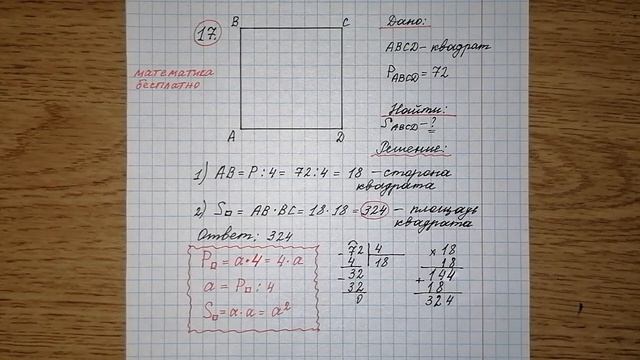 17.
B C
A D
математика
бесплатно
Дано:
ABCD - квадрат
P ABCD = 72
Найти:
S ABCD - ?
Решение:
1) AB = P : 4 = 72 : 4 = 18 - сторона
квадрата
2) S□ = AB · BC = 18 · 18 = 324 - площадь
квадрата
Ответ: 324
P□ = a · 4 = 4 · a
a = P□ : 4
S□ = a · a = a²
- 72 4
4 18
- 32
32
0
× 18
18
+ 144
18
324